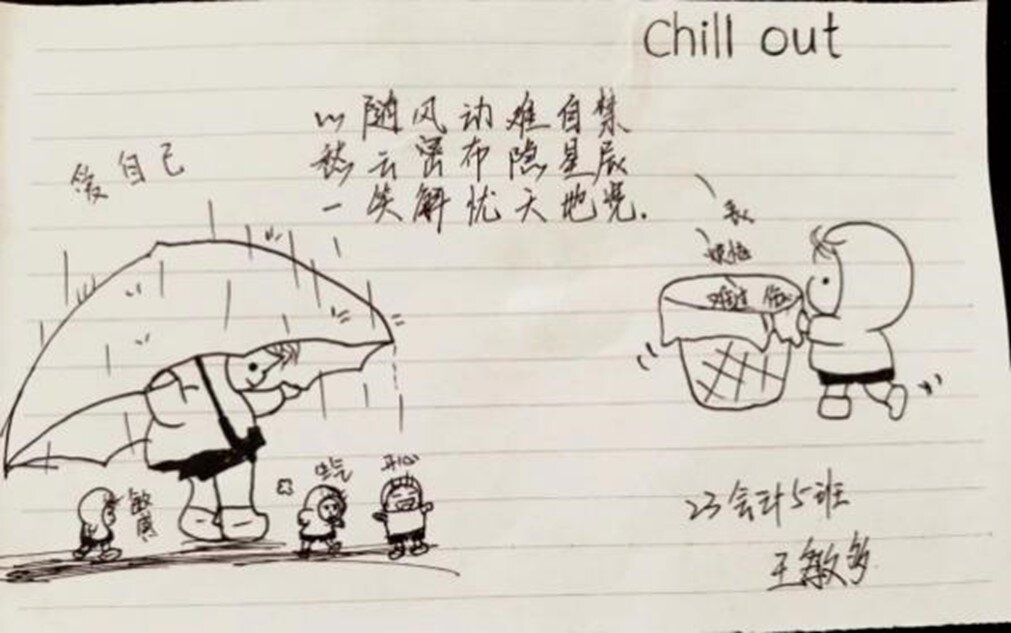 Chill out
心随风动难自禁
愁云密布隐星辰
一笑解忧天地宽.
爱自己
烦恼
难过 伤心
敏感
生气
开心
23会计5班
王敏多